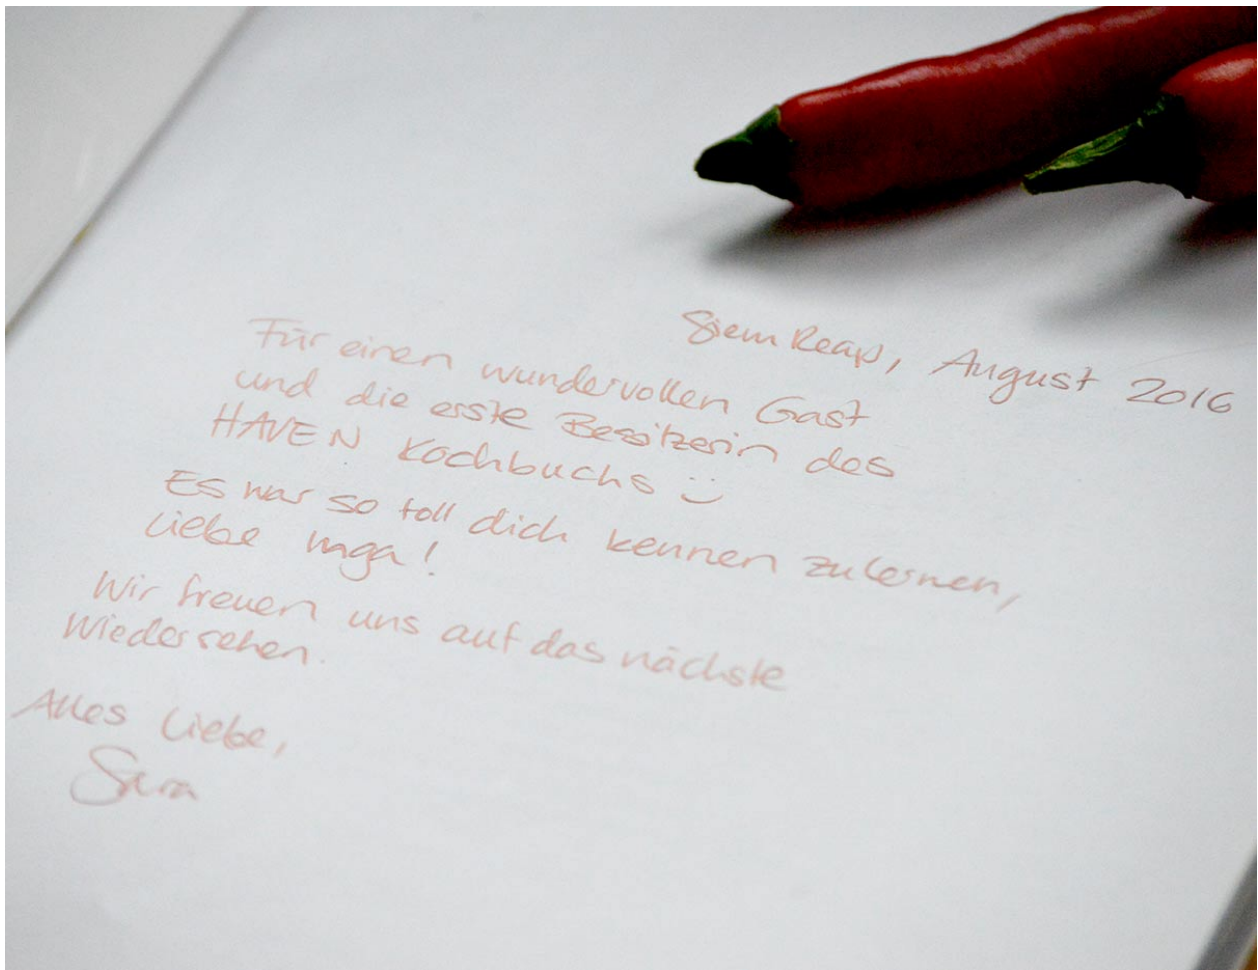 Siem Reap, August 2016
Für einen wundervollen Gast
und die erste Besitzerin des
HAVEN Kochbuchs ü
Es war so toll dich kennen zu lernen,
liebe Inga!
Wir freuen uns auf das nächste
Wiedersehen.
Alles Liebe,
Sara